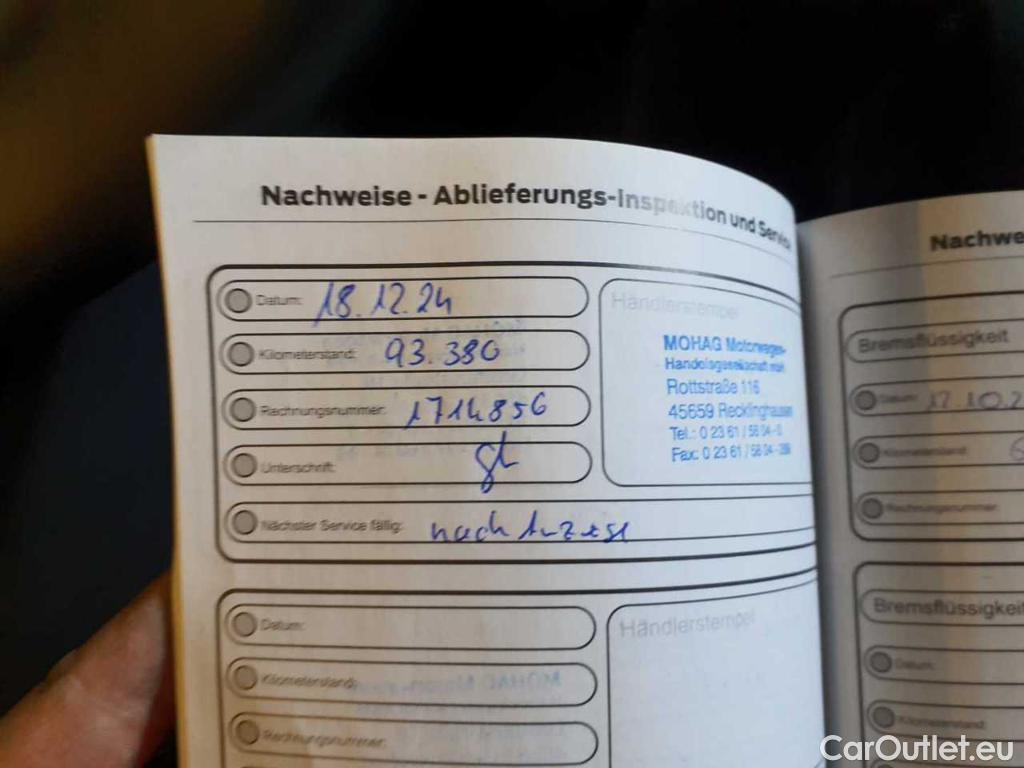 Nachweise - Ablieferungs-Inspektion und Service
Datum: 18.12.24
Kilometerstand: 93.380
Rechnungsnummer: 1714856
Unterschrift:
Nächster Service fällig: nach Anzeige
Händlerstempel
MOHAG Motorwagen-
Handelsgesellschaft mbH
Rottstraße 116
45659 Recklinghausen
Tel.: 0 23 61 / 58 04 - 0
Fax: 0 23 61 / 58 04 -
Datum:
Kilometerstand:
Rechnungsnummer:
Händlerstempel
Nachwe
Bremsflüssigkeit
Datum: 17.10.2
Kilometerstand:
Rechnungsnummer:
Bremsflüssigkeit
Datum:
Kilometerstand:
CarOutlet.eu